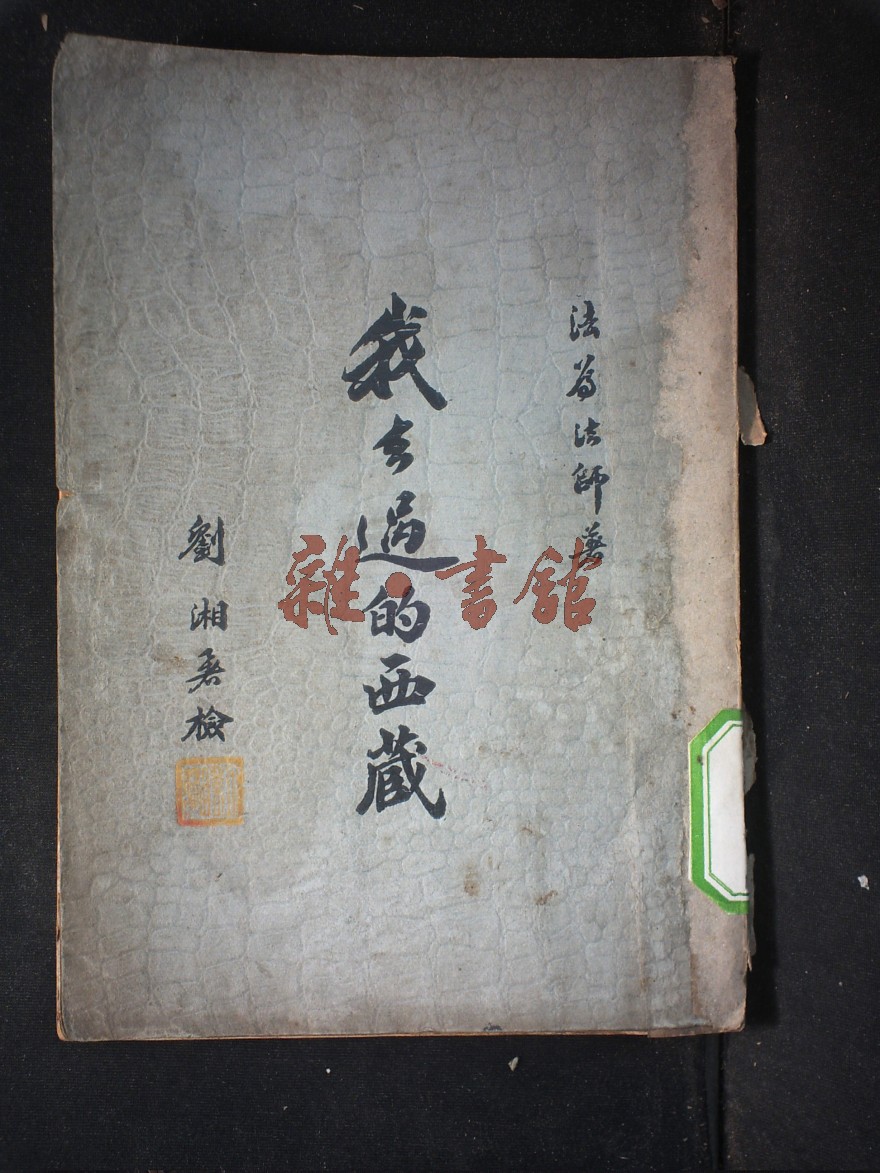 法尊法師著
我去過的西藏
劉湘署檢
雜·書館